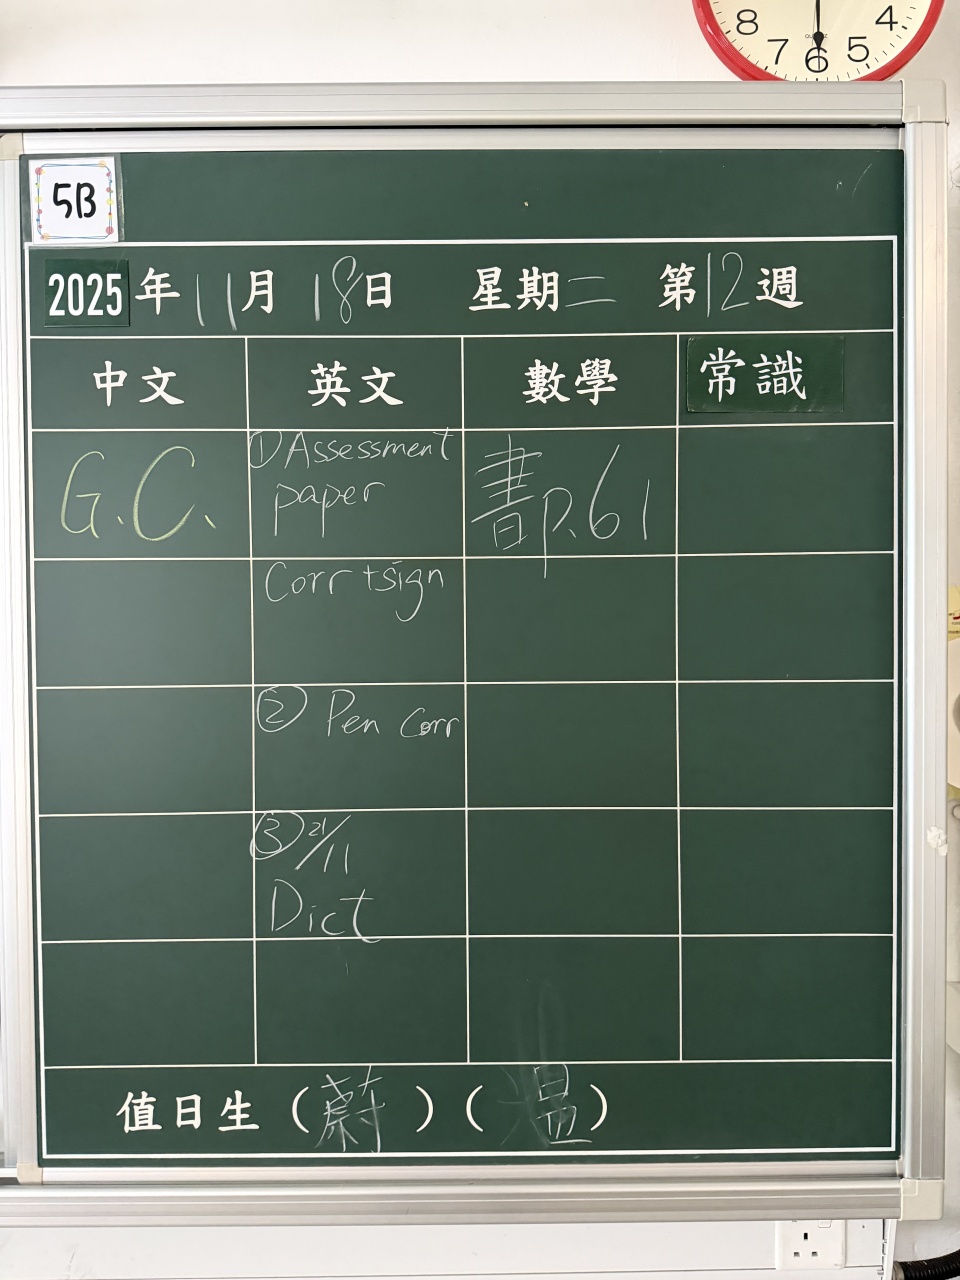 8
7
6
5
4
QUARTZ
5B
2025年11月18日 星期二 第12週
中文 英文 數學 常識
G.C.
① Assessment
paper
Corr + sign
② Pen Corr
③ 21/11
Dict
書p.61
值日生（蔚）（溫）